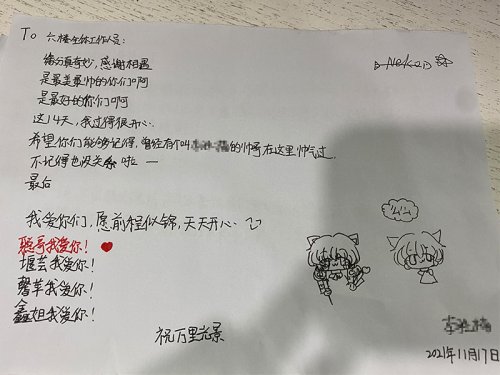 To 六楼全体工作人员:
缘分真奇妙,感谢相遇
是最美最帅的你们啊
是最好的你们啊
这14天,我过得很开心.
希望你们能够记得,曾经有个叫的帅哥在这里帅气过,
不记得也没关系啦
最后
我爱你们,愿前程似锦,天天开心
我爱你!
堰芸我爱你!
馨苹我爱你!
鑫姐我爱你!
祝万里光景
2021年11月17日